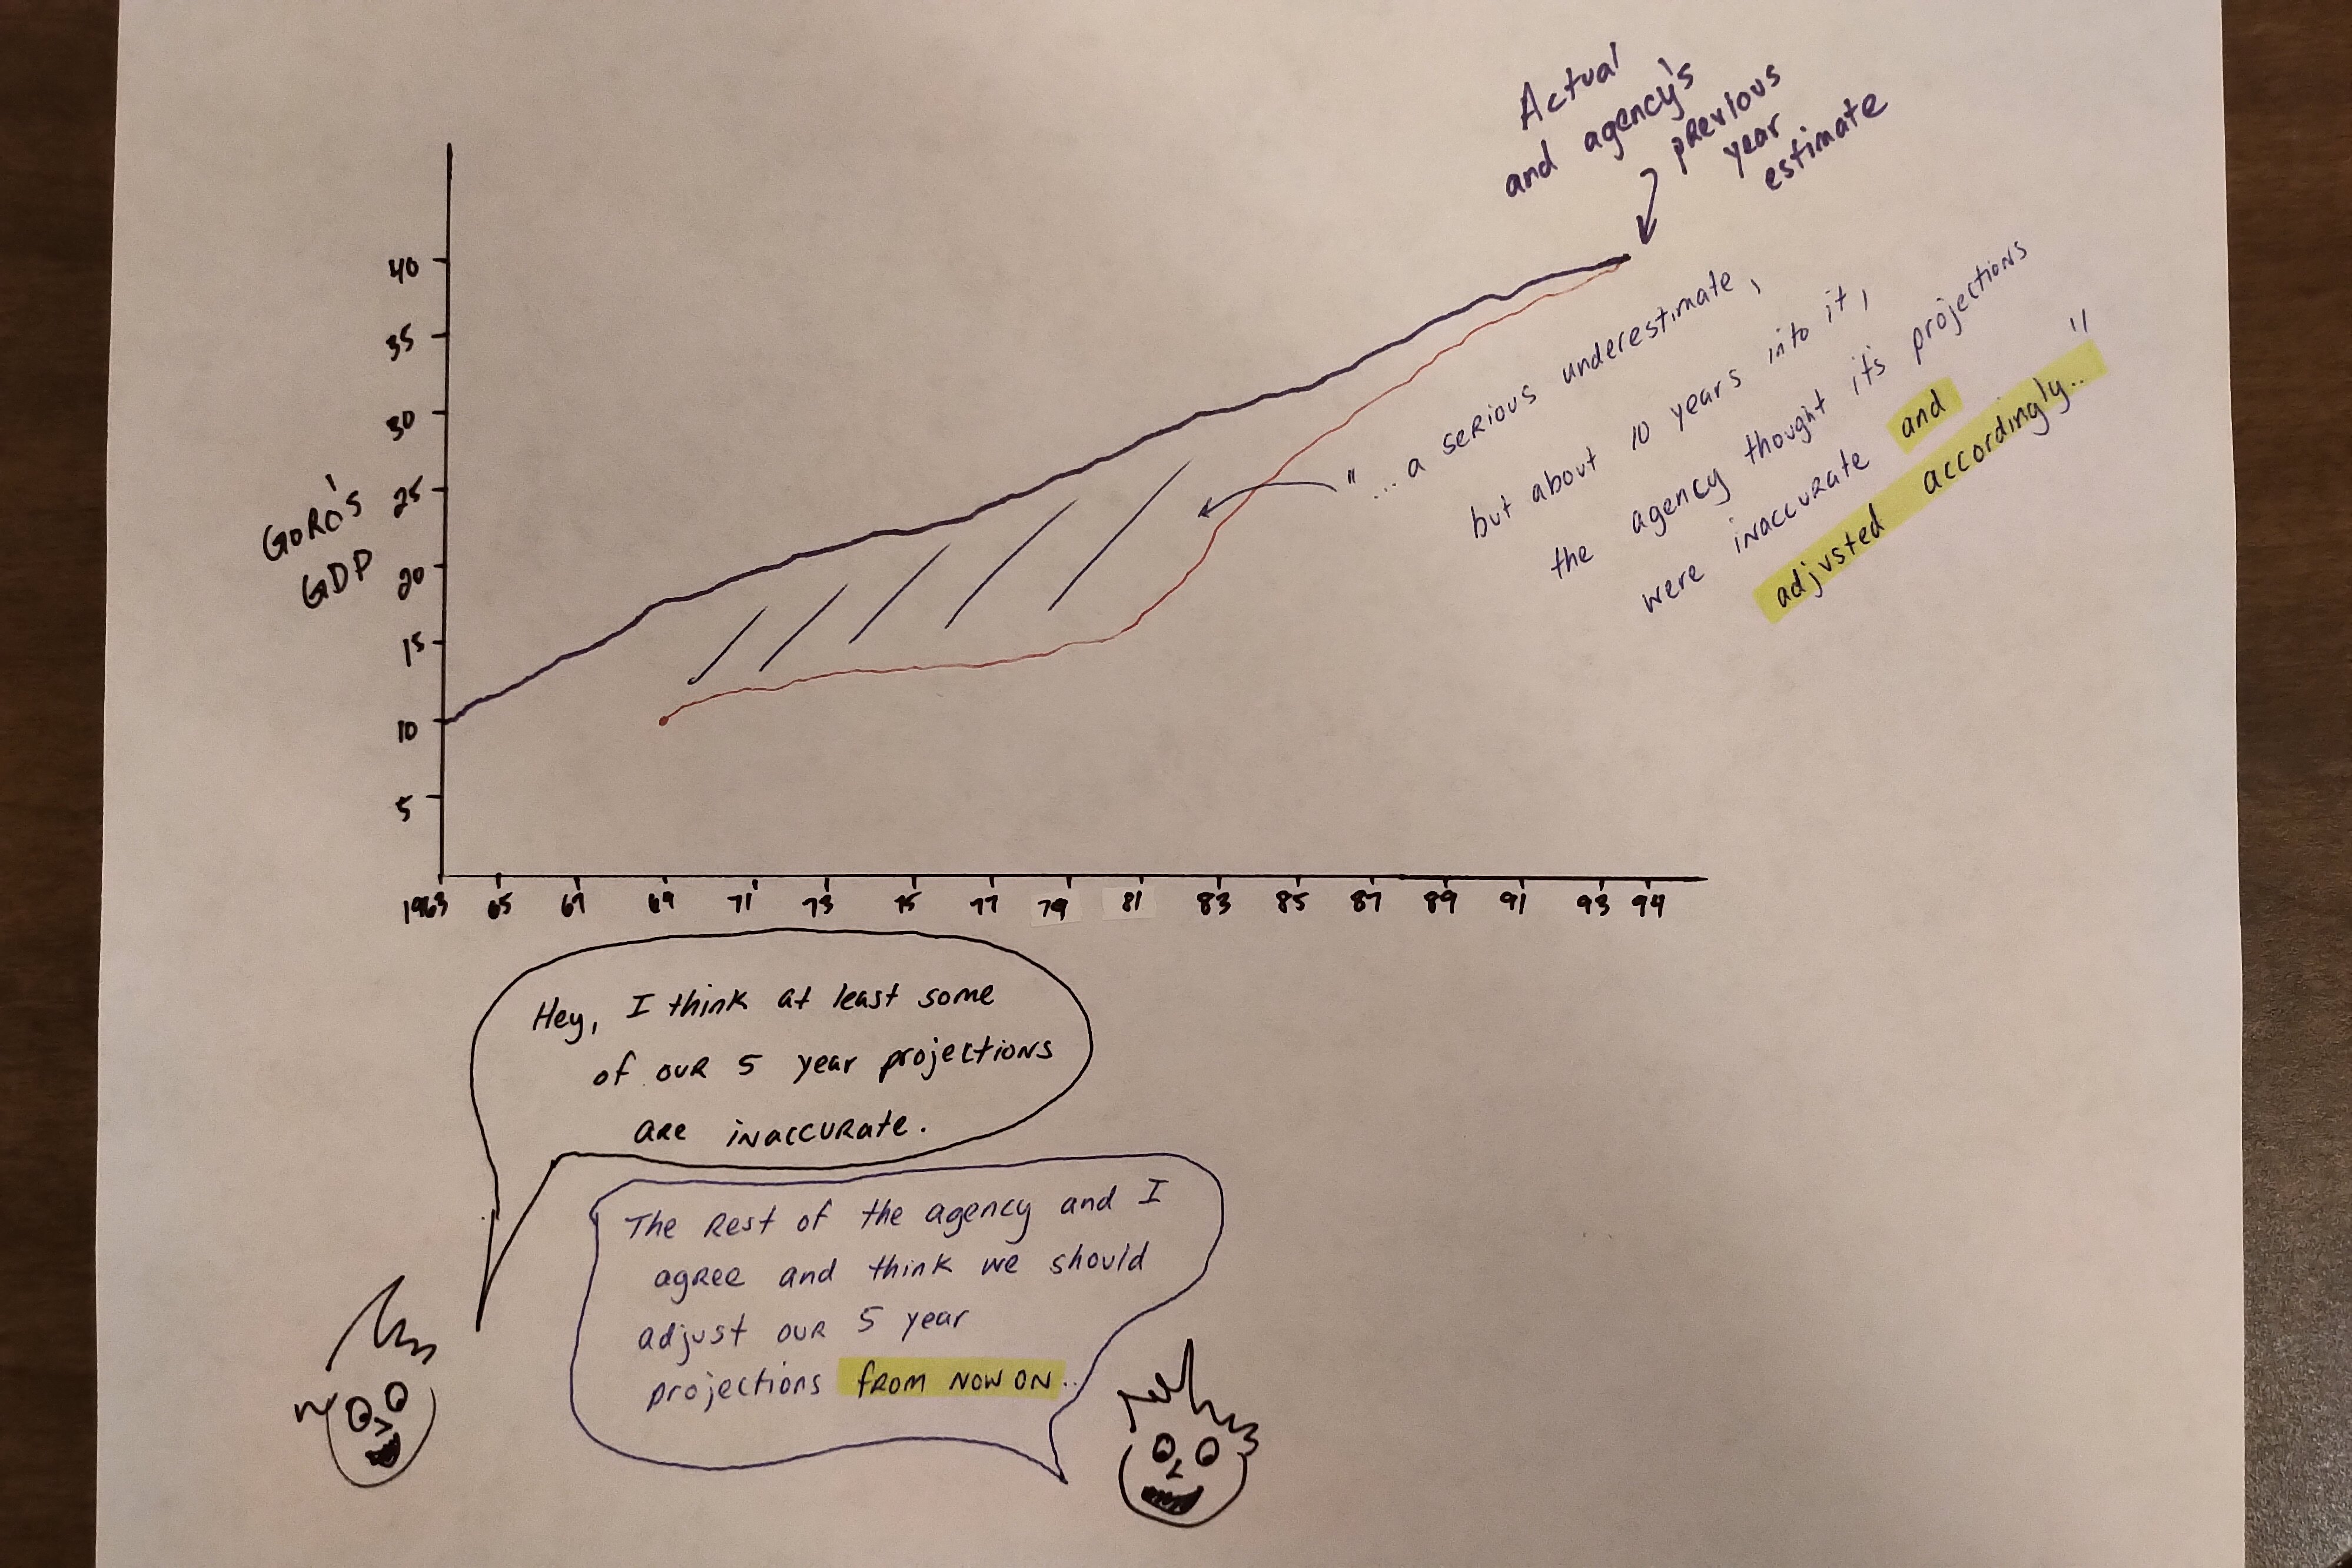 Actual
and agency's
previous
year
estimate
40
35
30
25
20
15
10
5
GORO'S
GDP
"...a serious underestimate,
but about 10 years into it,
the agency thought it's projections
were inaccurate and
adjusted accordingly.."
1963 65 67 69 71 73 75 77 79 81 83 85 87 89 91 93 94
Hey, I think at least some
of our 5 year projections
are inaccurate.
The rest of the agency and I
agree and think we should
adjust our 5 year
projections from now on..